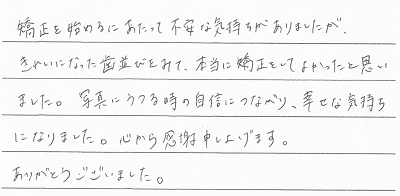 矯正を始めるにあたって不安な気持ちがありましたが、
きれいになった歯並びをみて、本当に矯正をしてよかったと思い
ました。写真にうつる時の自信につながり、幸せな気持ち
になりました。心から感謝申し上げます。
ありがとうございました。